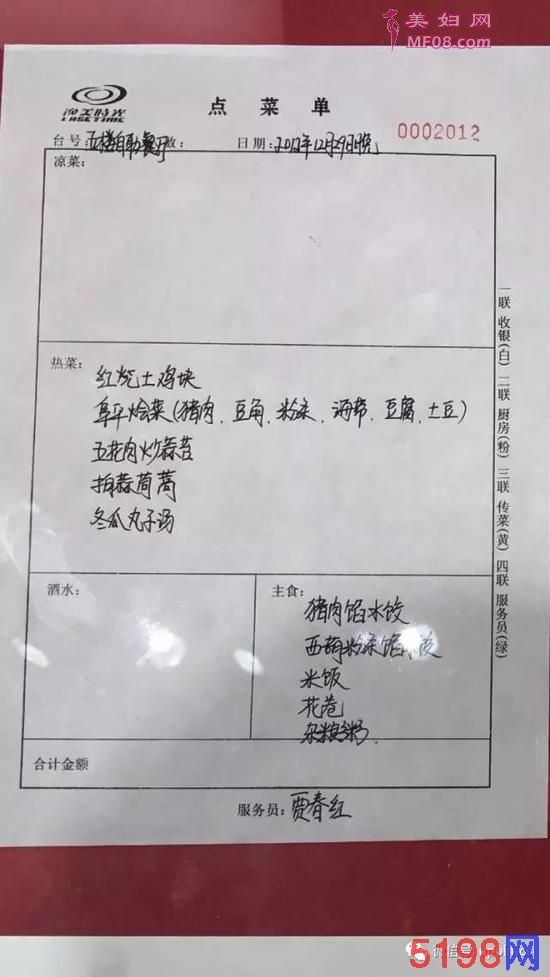 美妇网
MF08.com
逸美时光
LASETIME
点菜单
0002012
台号: 五楼自助餐厅 数: 日期: 2012年12月29日晚
凉菜:
热菜:
红烧土鸡块
阜平烩菜(猪肉、豆角、粉条、海带、豆腐、土豆)
五花肉炒蒜苔
拍蒜茼蒿
冬瓜丸子汤
酒水:
主食:
猪肉馅水饺
西葫粉条馅水饺
米饭
花卷
杂粮粥
合计金额
服务员: 贾春红
一联 收银(白) 二联 厨房(粉) 三联 传菜(黄) 四联 服务员(绿)
微信号
5198网